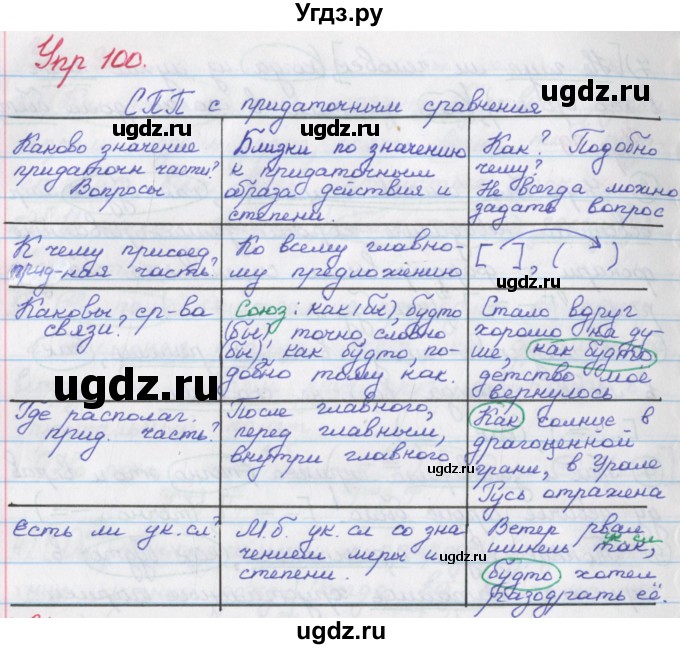 Угдз.ру
Упр 100.
СПП с придаточным сравнения
Каково значение
придаточн части?
Вопросы
Близки по значению
к придаточным
образа действия и
степени.
Как? Подобно
чему?
Не всегда можно
задать вопрос
К чему присоед
прид-ная часть?
Ко всему главно-
му предложению
[ ], ( )
Каковы ср-ва
связи?
Союз: как (бы), будто
(бы) точно, словно
бы), как будто, по-
добно тому как.
Стало вдруг
хорошо на ду-
ше, как будто
детство моё
вернулось
Где располаг.
прид. часть?
После главного,
перед главным,
внутри главного
Как солнце в
драгоценной
грани, в Урале
Русь отражена
Есть ли ук. сл?
М.б. ук. сл со зна
чением меры и
степени.
Ветер рвал
ук. сл
шинель так,
будто хотел
разодрать её.
uhdz.ru
uhdz.ru
uhdz.ru
uhdz.ru
uhdz.ru
uhdz.ru
uhdz.ru
uhdz.ru
uhdz.ru
uhdz.ru
uhdz.ru